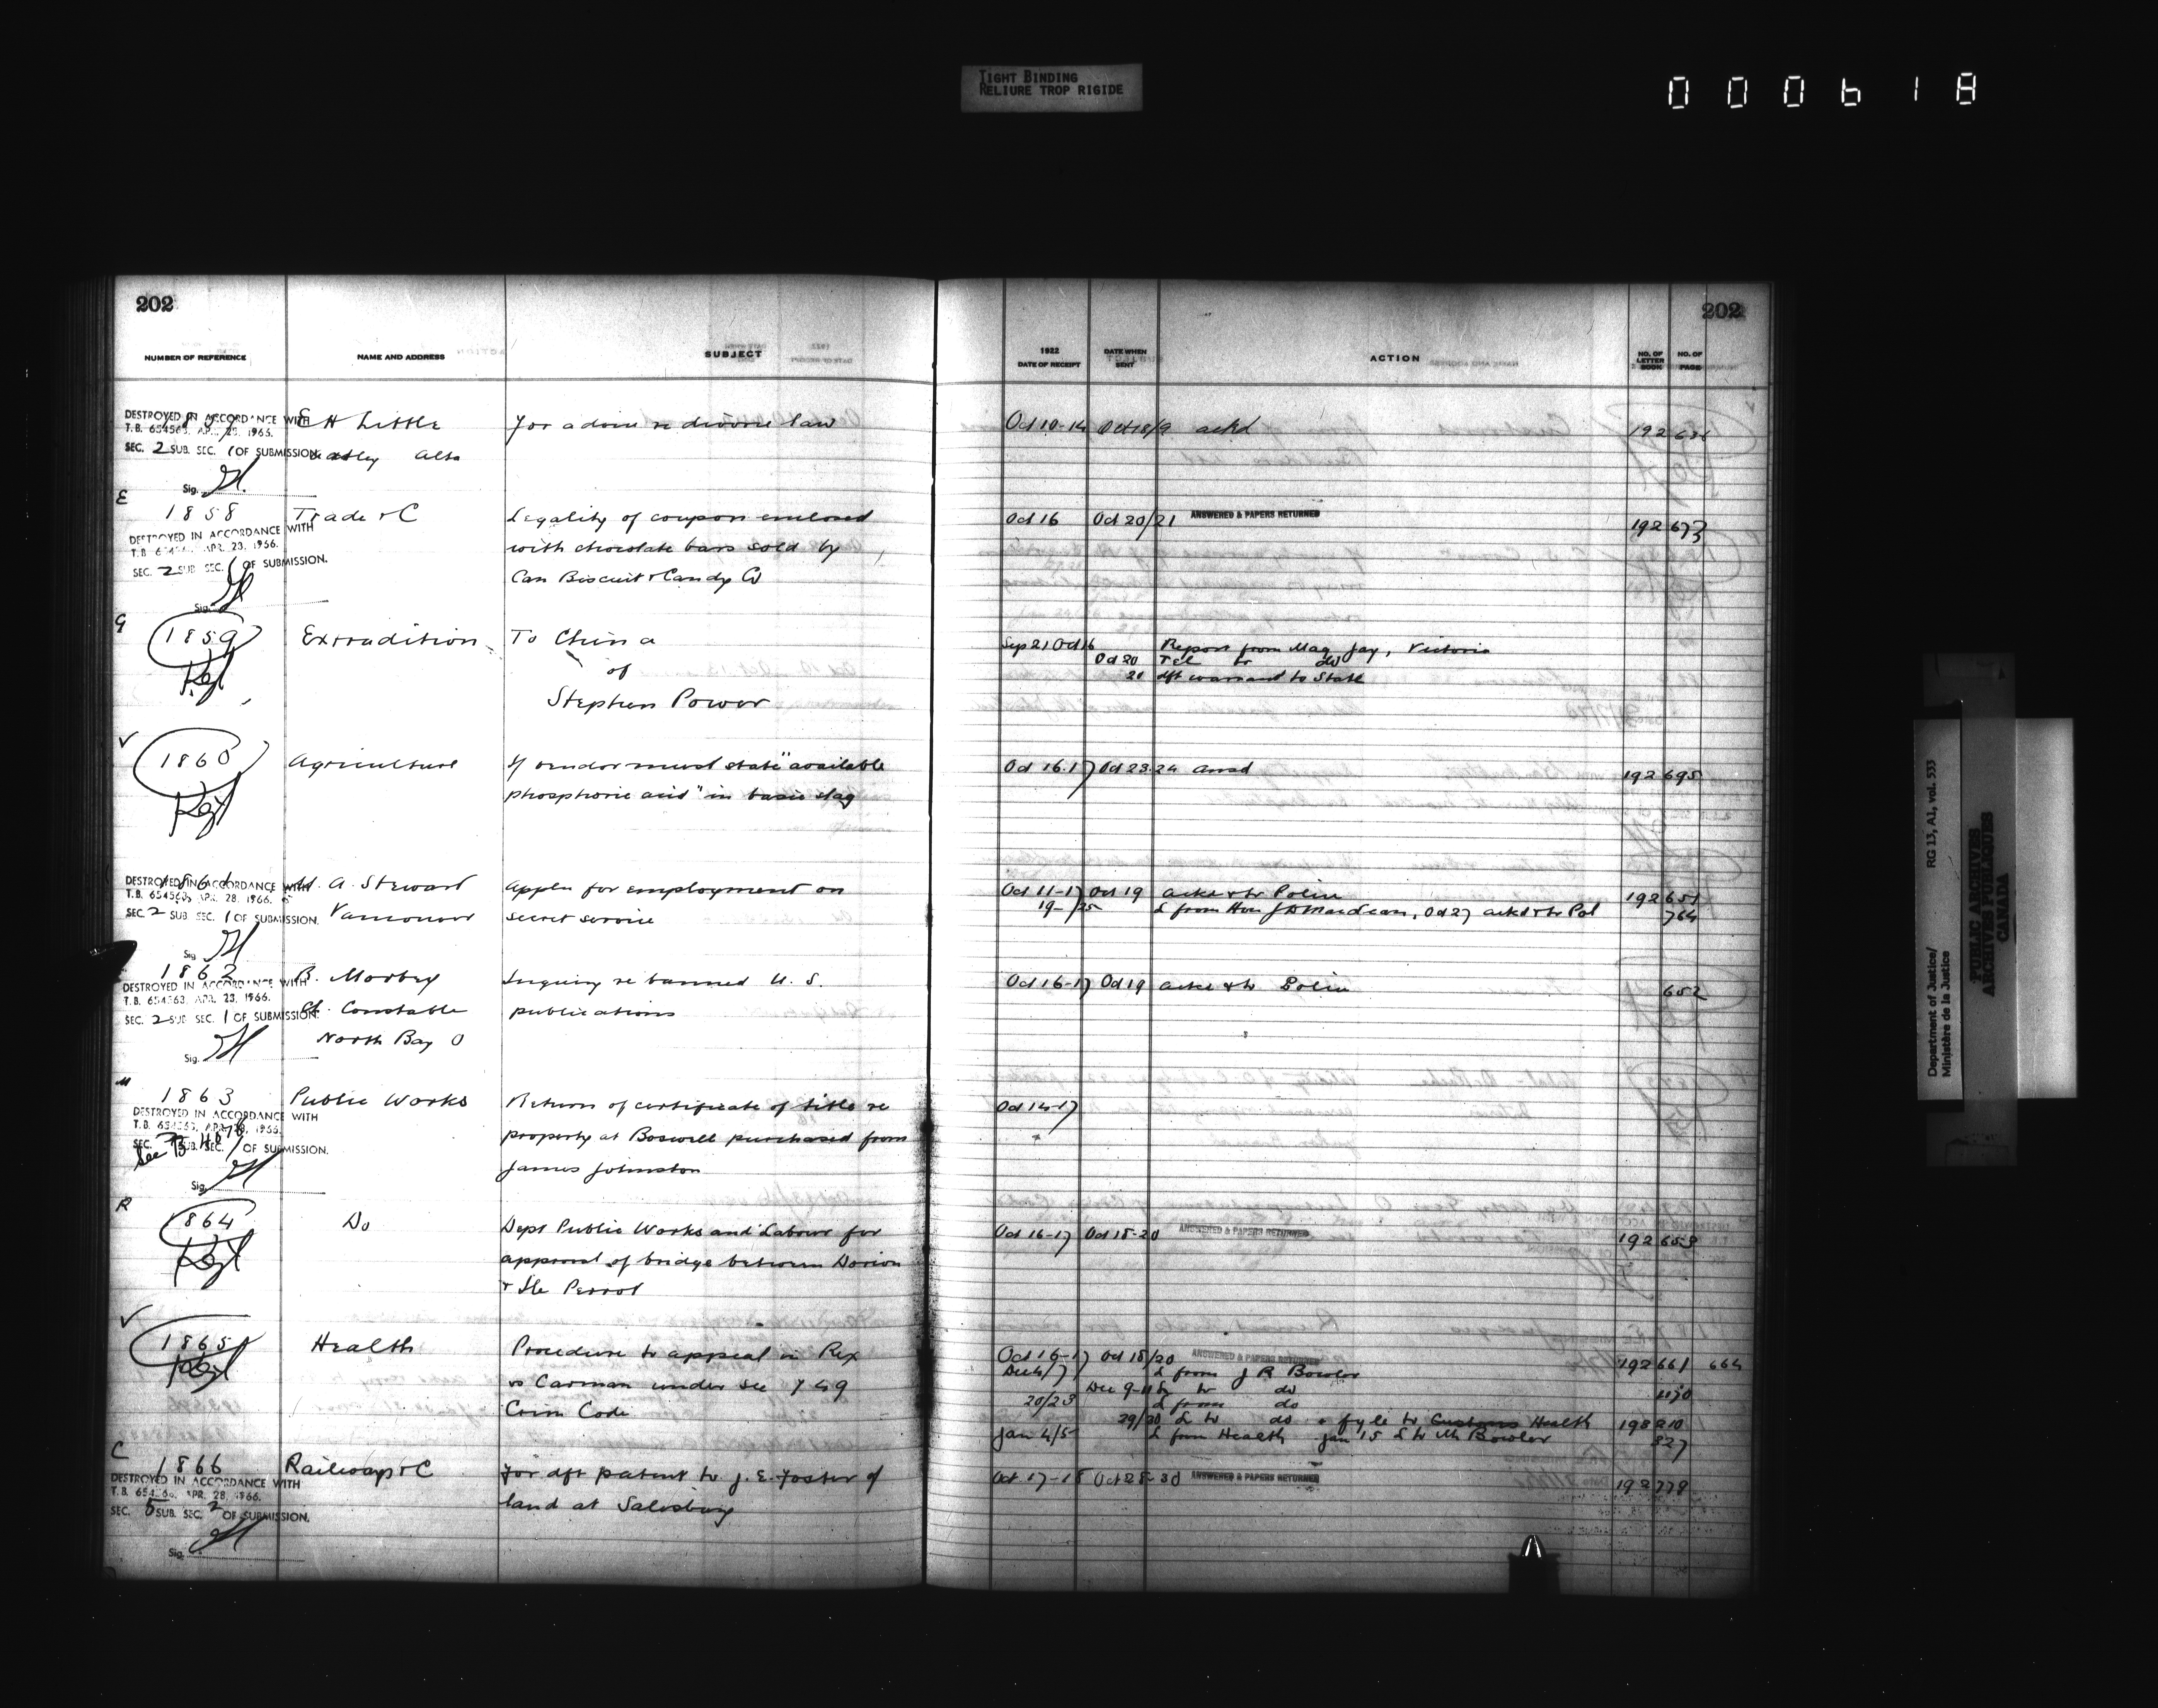 TIGHT BINDING
RELIURE TROP RIGIDE
000618
202
202
NUMBER OF REFERENCE NAME AND ADDRESS SUBJECT 1922 DATE OF RECEIPT DATE WHEN SENT ACTION NO. OF LETTER BOOK NO. OF PAGE
DESTROYED IN ACCORDANCE WITH
T.B. 654563, APR. 28, 1966.
SEC. 2 SUB. SEC. 1 OF SUBMISSION
Sig.
E H Little
Alta
For advice re divorce law
Oct 10-14 Oct 18/9 ackd 192
E
1858 Trade & C
DESTROYED IN ACCORDANCE WITH
T.B. APR. 23, 1966.
SEC. 2 SUB SEC. 1 OF SUBMISSION.
Sig.
Legality of coupon enclosed
with chocolate bars sold by
Can Biscuit & Candy Co
Oct 16 Oct 20/21 ANSWERED & PAPERS RETURNED 192 673
G
1859 Extradition
To China
of
Stephen Power
Sep 21 Oct 16 Report from Mag Jay, Victoria
Oct 20 Tel to do
21 dft warrant to State
1860 Agriculture
If vendor must state "available
phosphoric acid" in basic slag
Oct 16.17 Oct 23.24 ansd 192 695
1861 A. Stewart
DESTROYED IN ACCORDANCE WITH
T.B. 654563, APR. 28, 1966.
SEC. 2 SUB SEC. 1 OF SUBMISSION.
Sig.
Vancouver
Applcn for employment on
secret service
Oct 11-17 Oct 19 ackd & to Police 192 651
19-/25 L from Hon J D MacLean, Oct 27 ackd & to Pol 764
1862 B. Morbey
DESTROYED IN ACCORDANCE WITH
T.B. 654563, APR. 23, 1966.
SEC. 2 SUB SEC. 1 OF SUBMISSION.
Sig.
Ch. Constable
North Bay O
Inquiry re banned U. S.
publications
Oct 16-17 Oct 19 ackd & to Police 652
M
1863 Public Works
DESTROYED IN ACCORDANCE WITH
T.B. 654563, APR. 28, 1966.
SEC. SUB. SEC. 1 OF SUBMISSION.
Sig.
Return of certificate of title re
property at Boswell purchased from
James Johnston
Oct 14-17
R
1864 Do
Dept Public Works and Labour for
approval of bridge between Dorion
& Ile Perrot
Oct 16-17 Oct 18-20 ANSWERED & PAPERS RETURNED 192 653
1865 Health
Procedure to appeal in Rex
vs Carman under sec 749
Crim Code
Oct 16-17 Oct 18/20 ANSWERED & PAPERS RETURNED 192 661 664
Dec 4/7 L from J R Bowler
Dec 9-11 L to do 1130
20/23 L from do
29/30 L to do & fyle to Customs Health 198 210
Jan 4/5 L from Health Jan 15 L to Mr Bowler 327
C
1866 Railways & C
DESTROYED IN ACCORDANCE WITH
T.B. APR. 28, 1966.
SEC. 5 SUB. SEC. 2 OF SUBMISSION.
Sig.
For dft patent to J. E. Foster of
land at Salisbury
Oct 17-18 Oct 28-30 ANSWERED & PAPERS RETURNED 192 778
Department of Justice/ RG 13, A1, vol. 533
Ministère de la Justice
PUBLIC ARCHIVES
ARCHIVES PUBLIQUES
CANADA